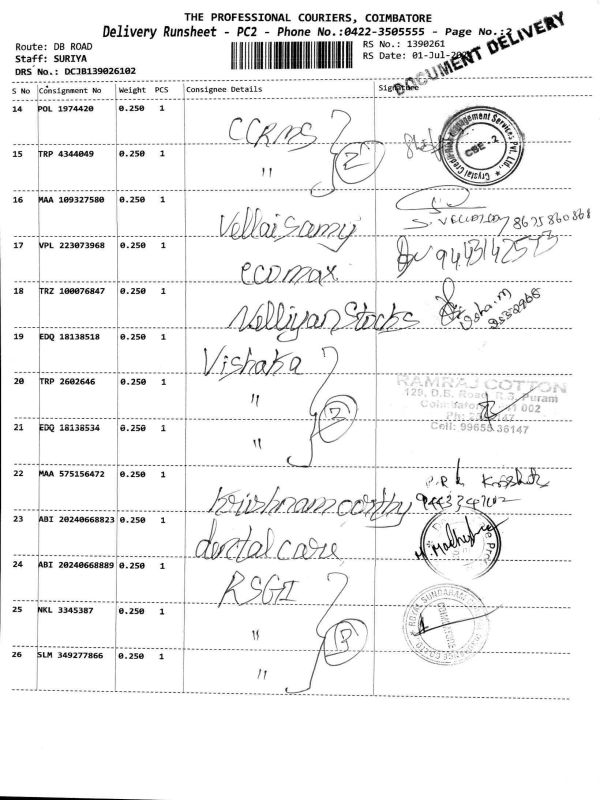 THE PROFESSIONAL COURIERS, COIMBATORE
Delivery Runsheet - PC2 - Phone No.:0422-3505555 - Page No.:2
Route: DB ROAD
RS No.: 1390261
Staff: SURIYA
RS Date: 01-Jul-
DRS No.: DCJB139026102
DOCUMENT DELIVERY
S No Consignment No Weight PCS Consignee Details Signature
14 POL 1974420 0.250 1 CCRMS
15 TRP 4344049 0.250 1 " 2
16 MAA 109327580 0.250 1 Vellaisamy
S. VELLAISAMY
17 VPL 223073968 0.250 1 ecomax
18 TRZ 100076847 0.250 1 Velliyan Stocks
19 EDQ 18138518 0.250 1 Vishaka
20 TRP 2602646 0.250 1 "
21 EDQ 18138534 0.250 1 "
RAMRAJ COTTON
129, D.B. Road, R.S. Puram
002
Cell: 99655 36147
22 MAA 575156472 0.250 1 Krishnamoorthy
23 ABI 20240668823 0.250 1 dental care
24 ABI 20240668889 0.250 1 RSGI
25 NKL 3345387 0.250 1 "
26 SLM 349277866 0.250 1 "
ROYAL SUNDARAM